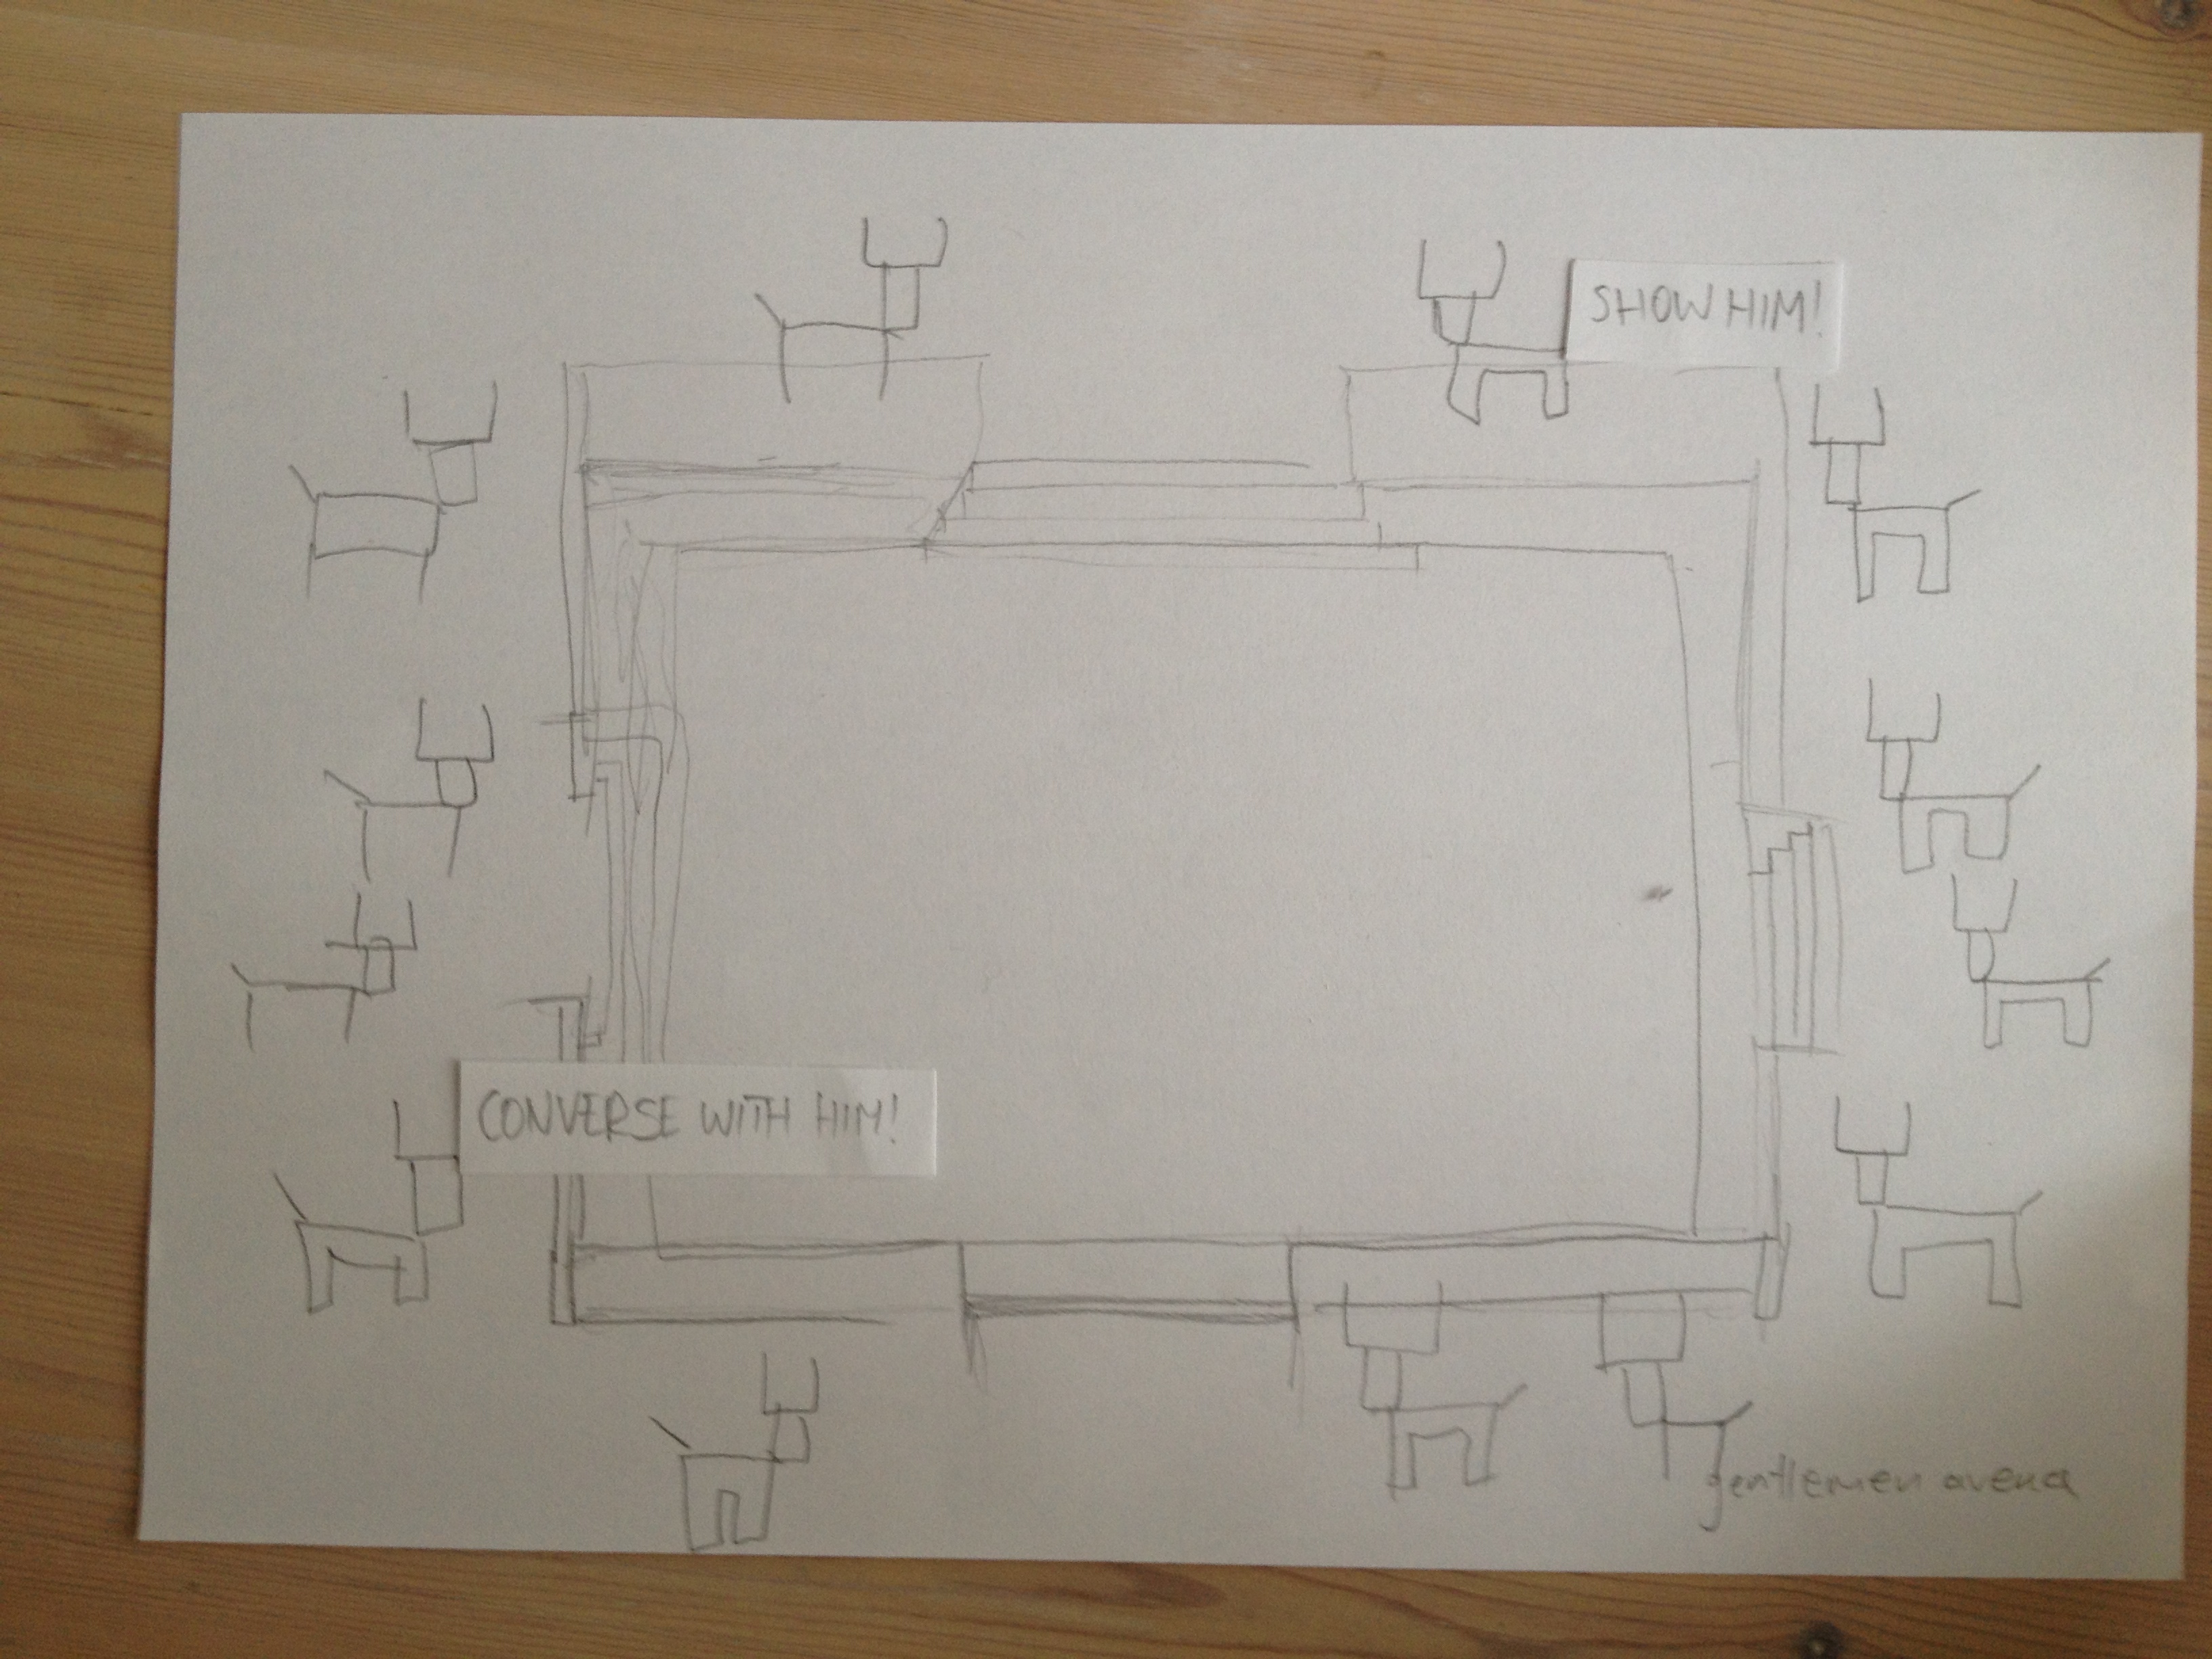 SHOW HIM!
CONVERSE WITH HIM!
gentlemen arena